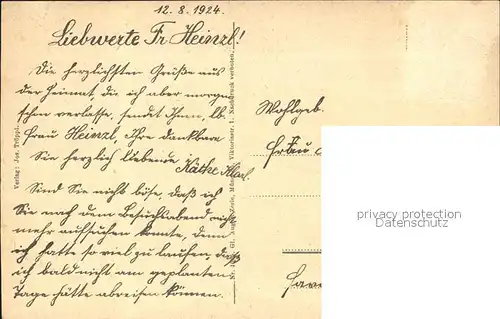 12.8.1924.
Liebwerte Fr Heinzl!
Die herzlichsten Grüße aus
der Heimat, die ich aber morgen
schon verlasse, sendet Ihnen, lb.
Frau Heinzl, Ihre dankbare
Sie herzlich liebende
Käthe
Sind Sie nicht böse, daß ich
Sie nach dem Besuchsabend nicht
mehr aufsuchen konnte, denn
ich hatte so viel zu laufen, daß
ich bald nicht am geplanten
Tage hätte abreisen können.
Verlag: Jos.
Viktoriastr. 1. Nachdruck verboten.
Wohlgeb.
Frau
privacy protection
Datenschutz